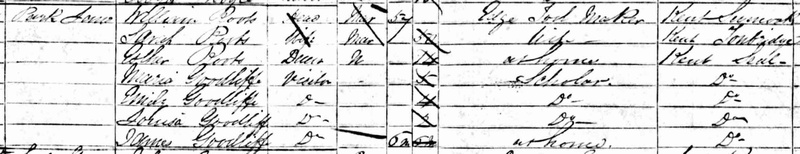 William Poots Mar 57 Edge Tool Maker Kent
Sarah Poots Wife Mar Wife Kent Tonbridge
Poots Daur U 14 at home Kent Seal
Maria Goodliffe Visitor 5 Scholar Do
Emily Goodliffe Do 4 Do Do
Louisa Goodliffe Do Do Do
James Goodliffe Do at home. Do